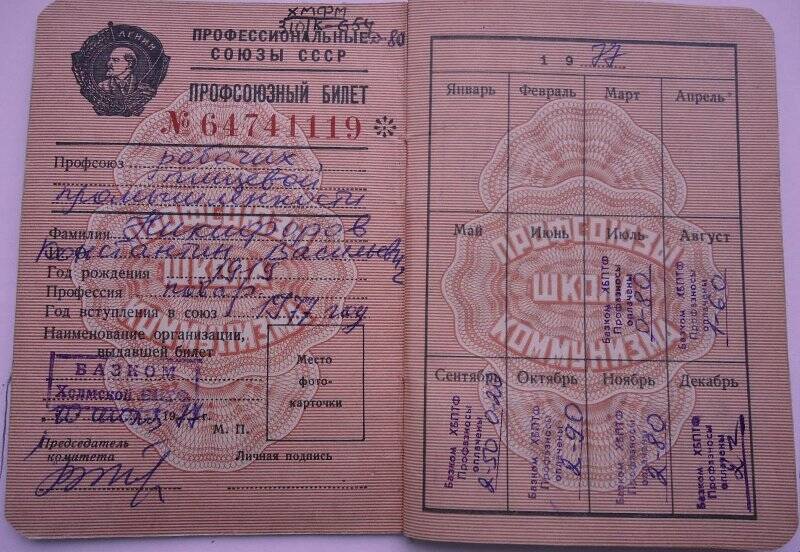 ХМФМ
ПРОФЕССИОНАЛЬНЫЕ
СОЮЗЫ СССР
ЛЕНИН
ПРОФСОЮЗНЫЙ БИЛЕТ
№ 64741119
Профсоюз рабочих
пищевой
промышленности
Фамилия Никифоров
Константин Васильевич
Год рождения 1919
Профессия повар
Год вступления в союз 1977 год
Наименование организации,
выдавшей билет
БАЗКОМ
Холмской
10 июля 1977 г.
М. П.
Председатель
комитета
Место
фото-
карточки
Личная подпись
1977
Январь Февраль Март Апрель
Май Июнь Июль Август
Базком ХБПТФ
Профвзносы
оплачены
0-80
Базком ХБПТФ
Профвзносы
оплачены
1-60
ПРОФСОЮЗЫ
ШКОЛА
КОММУНИЗМА
Сентябрь Октябрь Ноябрь Декабрь
Базком ХБПТФ
Профвзносы
оплачены
Базком ХБПТФ
Профвзносы
оплачены
2-90
Базком ХБПТФ
Профвзносы
2-80
Базком ХБПТФ
Профвзносы
оплачены